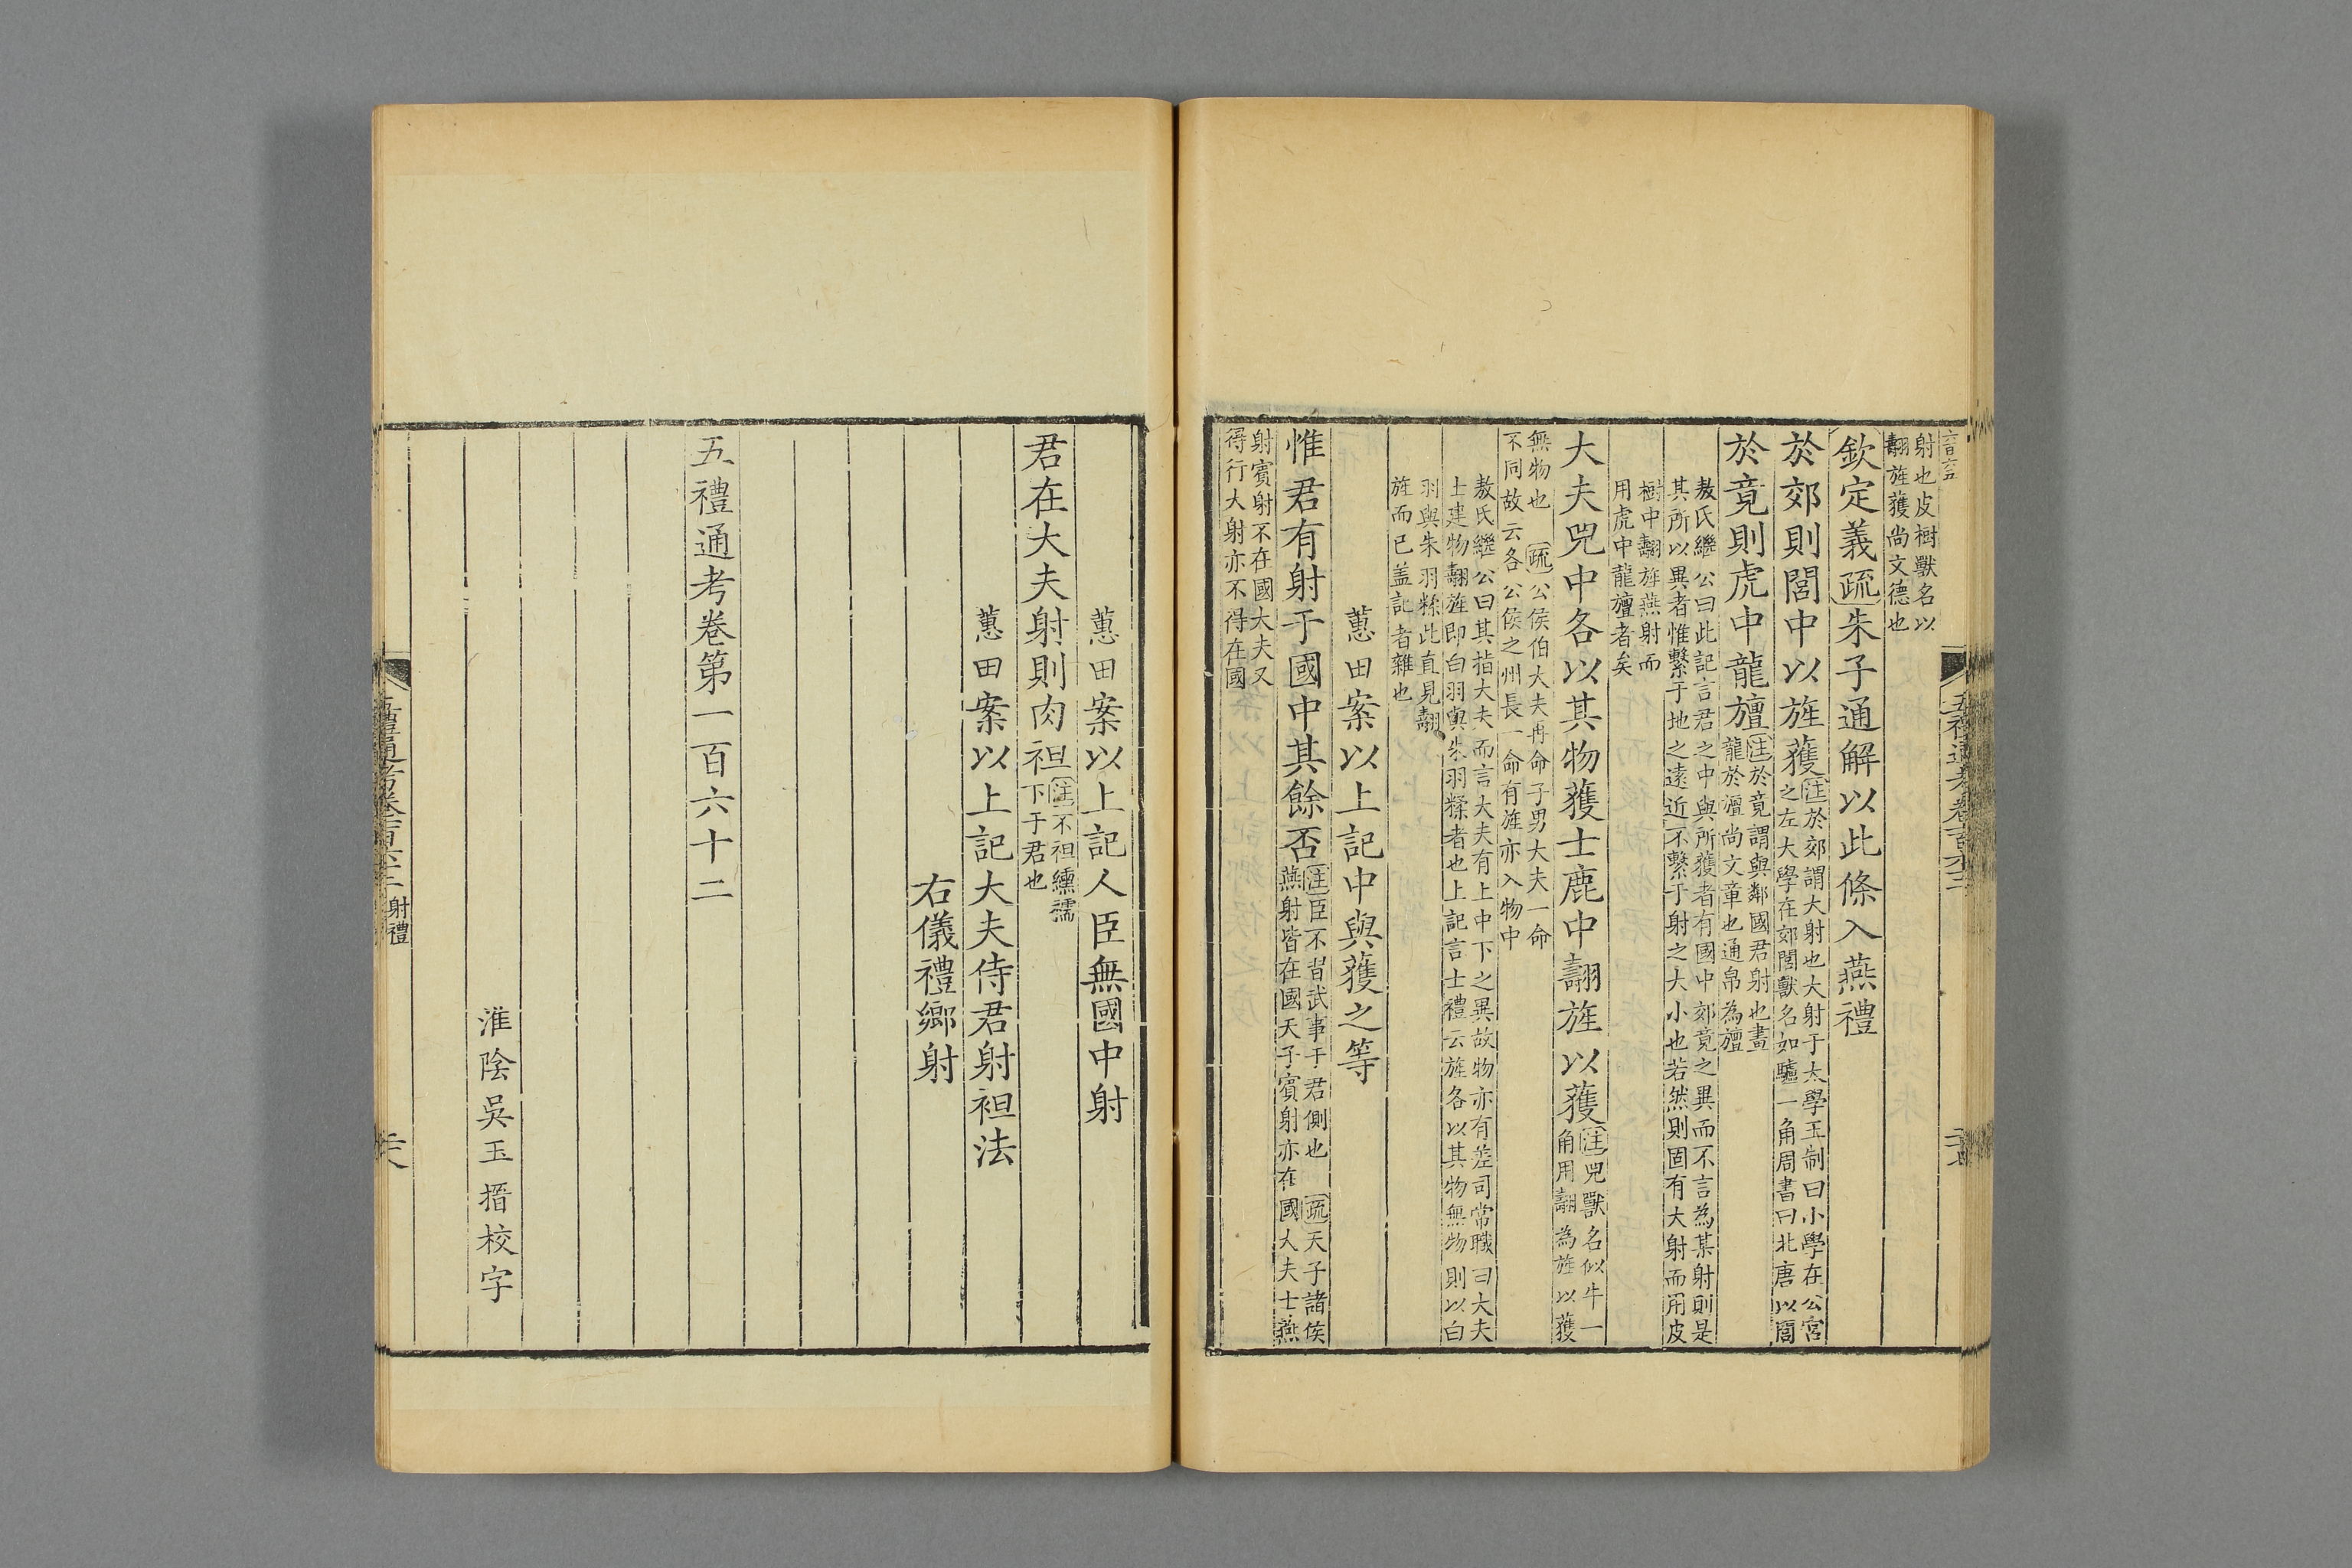 射也皮樹獸名以
翿旌獲尚文德也
欽定義疏朱子通解以此條入燕禮
於郊則閭中以旌獲
注於郊謂大射也大射于太學王制曰小學在公宮
之左大學在郊閭獸名如驢一角周書曰北唐以閭
於竟則虎中龍旜
注於竟謂與鄰國君射也畫
龍於旜尚文章也通帛為旜
敖氏繼公曰此記言君之中與所獲者有國中郊竟之異而不言為某射則是
其所以異者惟繫于地之遠近不繫于射之大小也若然則固有大射而用皮
樹中翿旌燕射而
用虎中龍旜者矣
大夫兕中各以其物獲士鹿中翿旌以獲
注兕獸名似牛一
角用翿為旌以獲
無物也 疏公侯伯大夫再命子男大夫一命
不同故云各公侯之州長一命有旌亦入物中
敖氏繼公曰其指大夫而言大夫有上中下之異故物亦有差司常職曰大夫
士建物翿旌即白羽與朱羽糅者也上記言士禮云旌各以其物無物則以白
羽與朱羽糅此直見翿
旌而已蓋記者雜也
蕙田案以上記中與獲之等
惟君有射于國中其餘否
注臣不習武事于君側也 疏天子諸侯
燕射皆在國天子賓射亦在國大夫士燕
射賓射不在國大夫又
得行大射亦不得在國
五禮通考卷百六十二
蕙田案以上記人臣無國中射
君在大夫射則肉袒
注不袒纁襦
下于君也
蕙田案以上記大夫侍君射袒法
右儀禮鄉射
五禮通考卷第一百六十二
淮陰吳玉搢校字
五禮通考卷百六十二 射禮